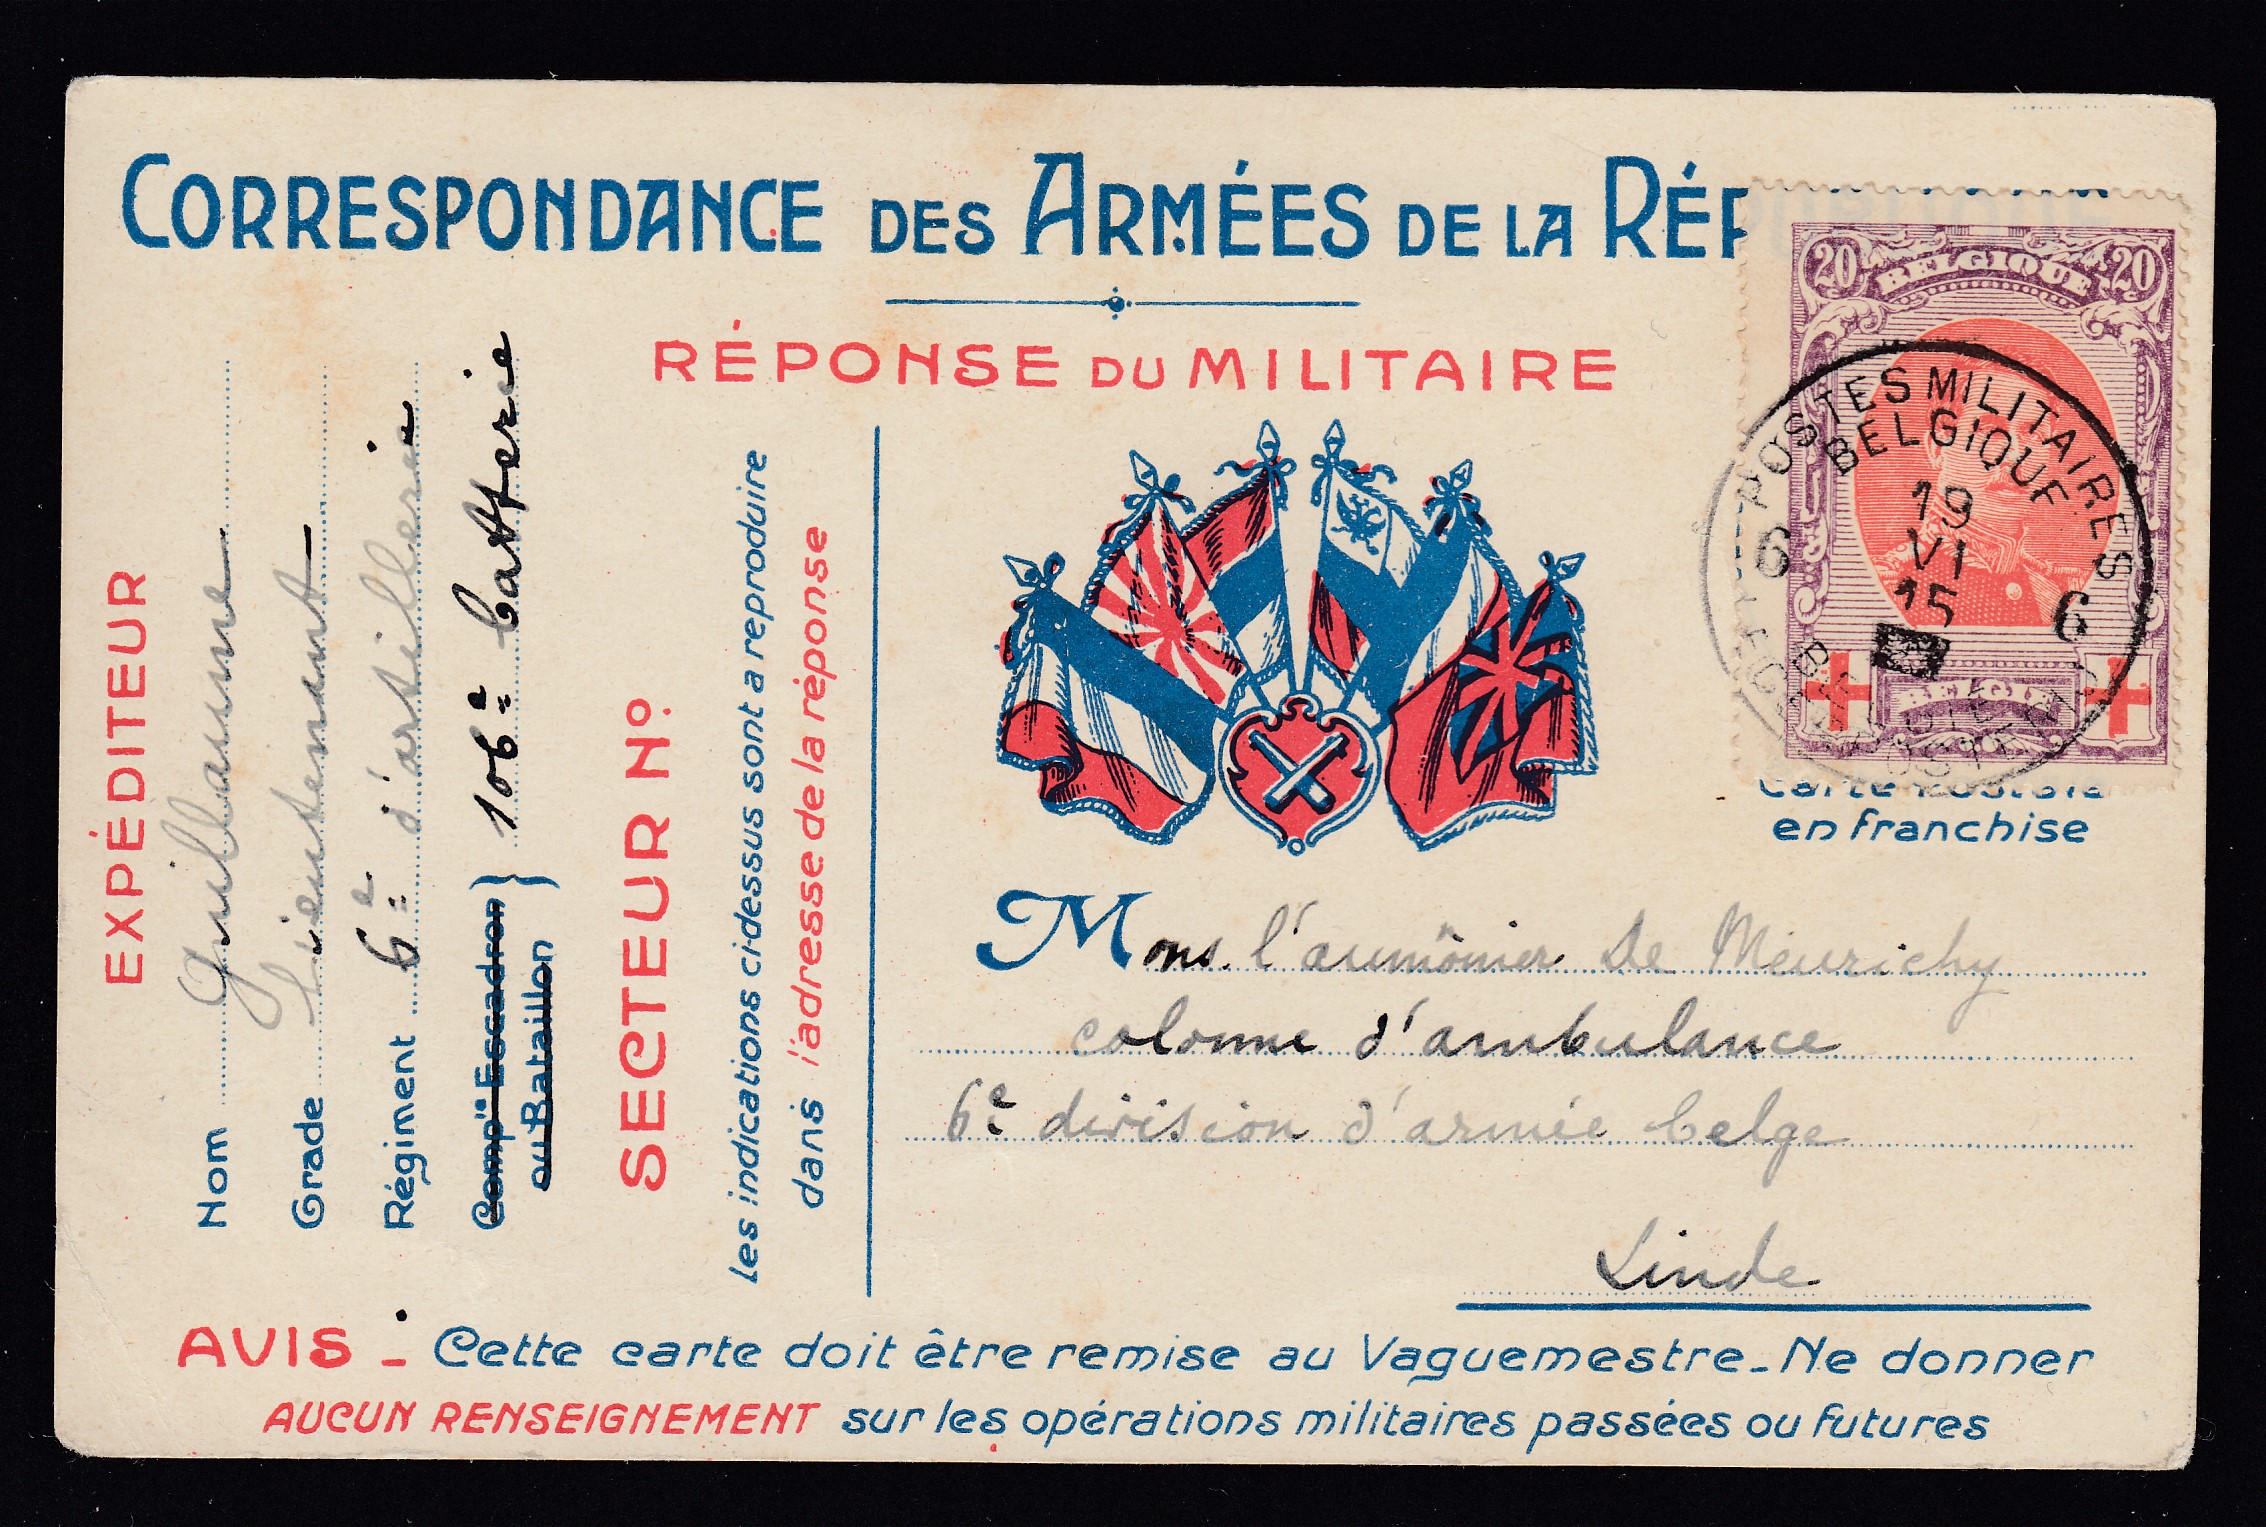 CORRESPONDANCE DES ARMÉES DE LA RÉP
RÉPONSE DU MILITAIRE
EXPÉDITEUR
Nom Guillaume
Grade Lieutenant
Régiment 6e d'artillerie
Compie Escadron
ou Bataillon } 106e batterie
SECTEUR No.
Les indications ci-dessus sont a reproduire
dans l'adresse de la réponse
20 BELGIQUE 20
BELGIE
POSTES MILITAIRES
BELGIQUE
19
VI
15
6 6
Carte Postale
en franchise
Mons. l'aumônier De Meurichy
colonne d'ambulance
6e division d'armée belge
Linde
AVIS - Cette carte doit être remise au Vaguemestre - Ne donner
AUCUN RENSEIGNEMENT sur les opérations militaires passées ou futures